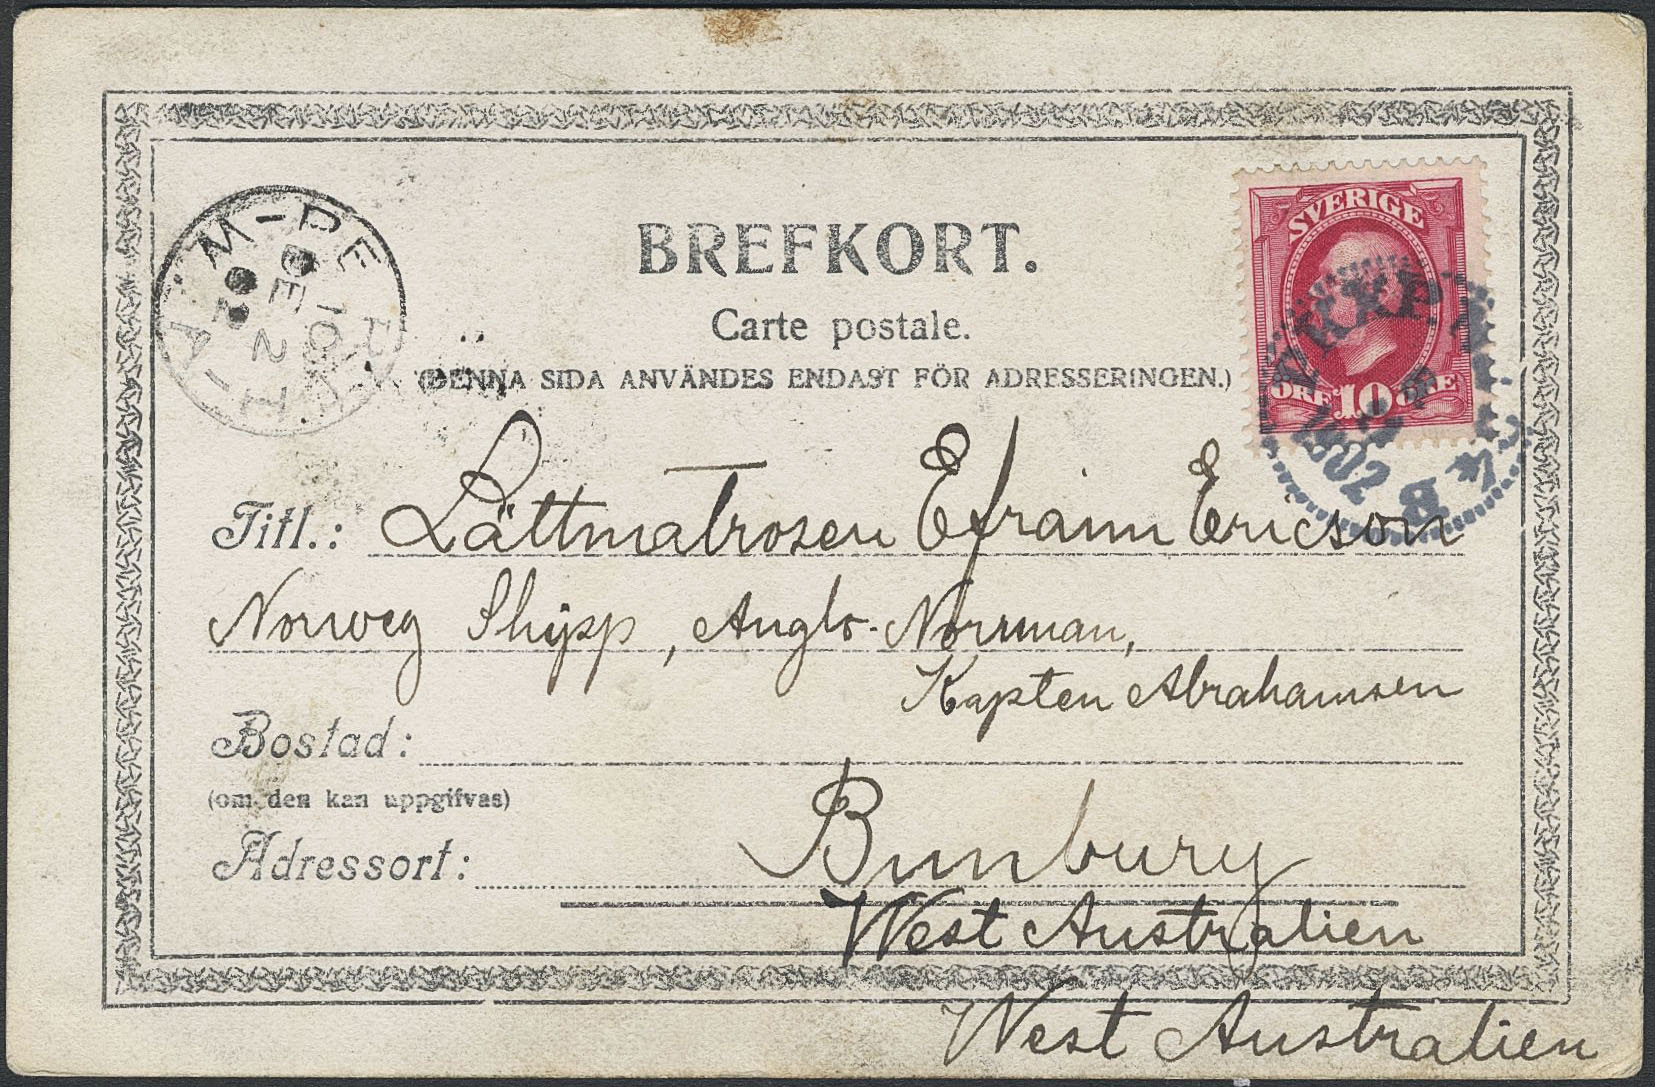 BREFKORT.
Carte postale.
(DENNA SIDA ANVÄNDES ENDAST FÖR ADRESSERINGEN.)
SVERIGE
ÖRE 10 ÖRE
PKXP.
1902
M-PE
DE 2
02
Titl.: Lättmatrosen Efraim Ericson
Norweg Shipp, Anglo-Norrman,
Kapten Abrahamsen
Bostad:
(om den kan uppgifvas)
Adressort: Bunbury
West Australien
West Australien